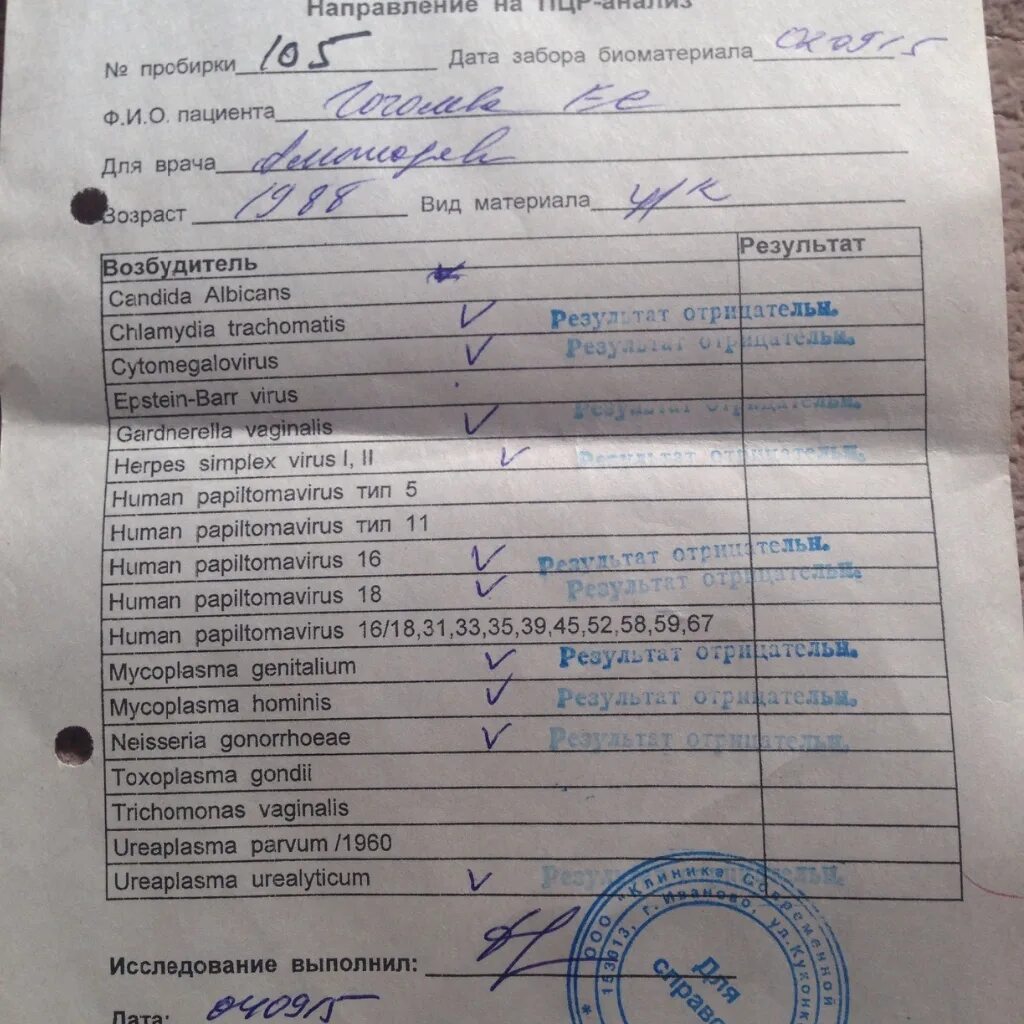 Направление на ПЦР-анализ
№ пробирки 105 Дата забора биоматериала 020915
Ф.И.О. пациента ЕС
Для врача
Возраст 1988 Вид материала ц/к
Возбудитель Результат
Candida Albicans
Chlamydia trachomatis Результат отрицательн.
Cytomegalovirus Результат отрицательн.
Epstein-Barr virus
Gardnerella vaginalis Результат отрицательн.
Herpes simplex virus I, II Результат отрицательн.
Human papiltomavirus тип 5
Human papiltomavirus тип 11
Human papiltomavirus 16 Результат отрицательн.
Human papiltomavirus 18 Результат отрицательн.
Human papiltomavirus 16/18,31,33,35,39,45,52,58,59,67
Mycoplasma genitalium Результат отрицательн.
Mycoplasma hominis Результат отрицательн.
Neisseria gonorrhoeae Результат отрицательн.
Toxoplasma gondii
Trichomonas vaginalis
Ureaplasma parvum /1960
Ureaplasma urealyticum Результат отрицательн.
Исследование выполнил:
Дата: 040915
* ООО "Клиника Современной
153013, г. Иваново, ул.Куконк
Для
справо